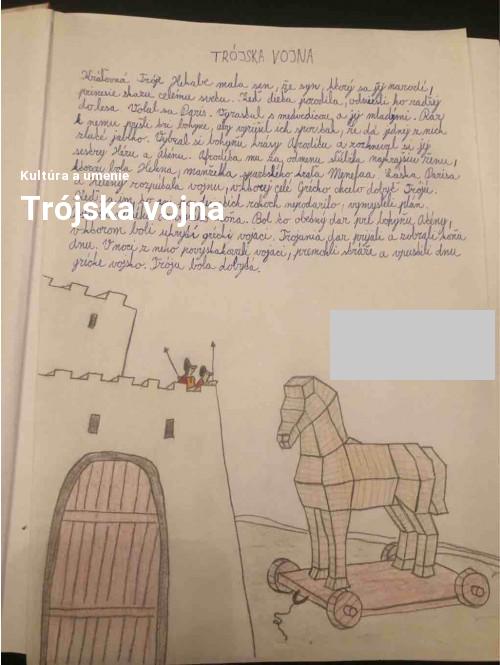 TRÓJSKA VOJNA
Kráľovná Tróje Hekabe mala sen, že syn, ktorý sa jej narodí,
prinesie skazu celému svetu. Keď dieťa porodila, odniesli ho radšej
do lesa. Volal sa Paris. Vyrastal s medvedicou a jej mladými. Raz
k nemu prišli tri bohyne, aby vyriešil ich spor tak, že dá jednej z nich
zlaté jablko. Vybral si bohyňu krásy Afroditu a rozhneval si jej
sestry Héru a Aténu. Afrodita mu za odmenu sľúbila najkrajšiu ženu,
ktorou bola Helena, manželka spartského kráľa Menelaa. Láska Parisa
a Heleny rozpútala vojnu, v ktorej celé Grécko chcelo dobyť Tróju.
Kultúra a umenie
Trójska vojna
rokoch nepodarilo, vymysleli plán.
koňa. Bol to obetný dar pre bohyňu Aténu,
v ktorom boli ukrytí grécki vojaci. Trójania dar prijali a zobrali koňa
dnu. V noci z neho povyskakovali vojaci, premohli stráže a vpustili dnu
grécke vojsko. Trója bola dobytá.